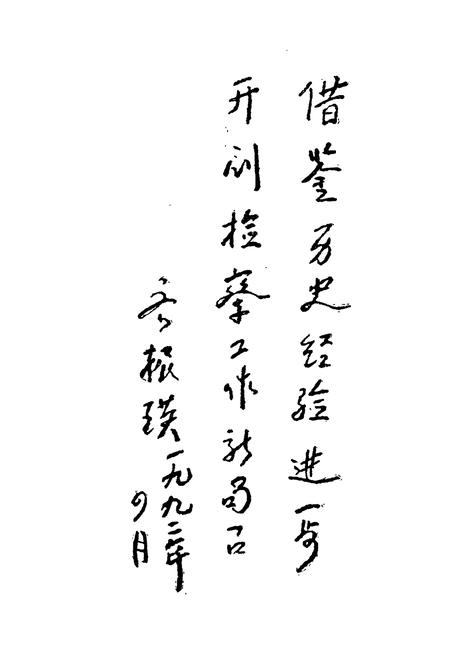 借鉴历史经验进一步
开创检察工作新局面
振瑛一九九二年
月